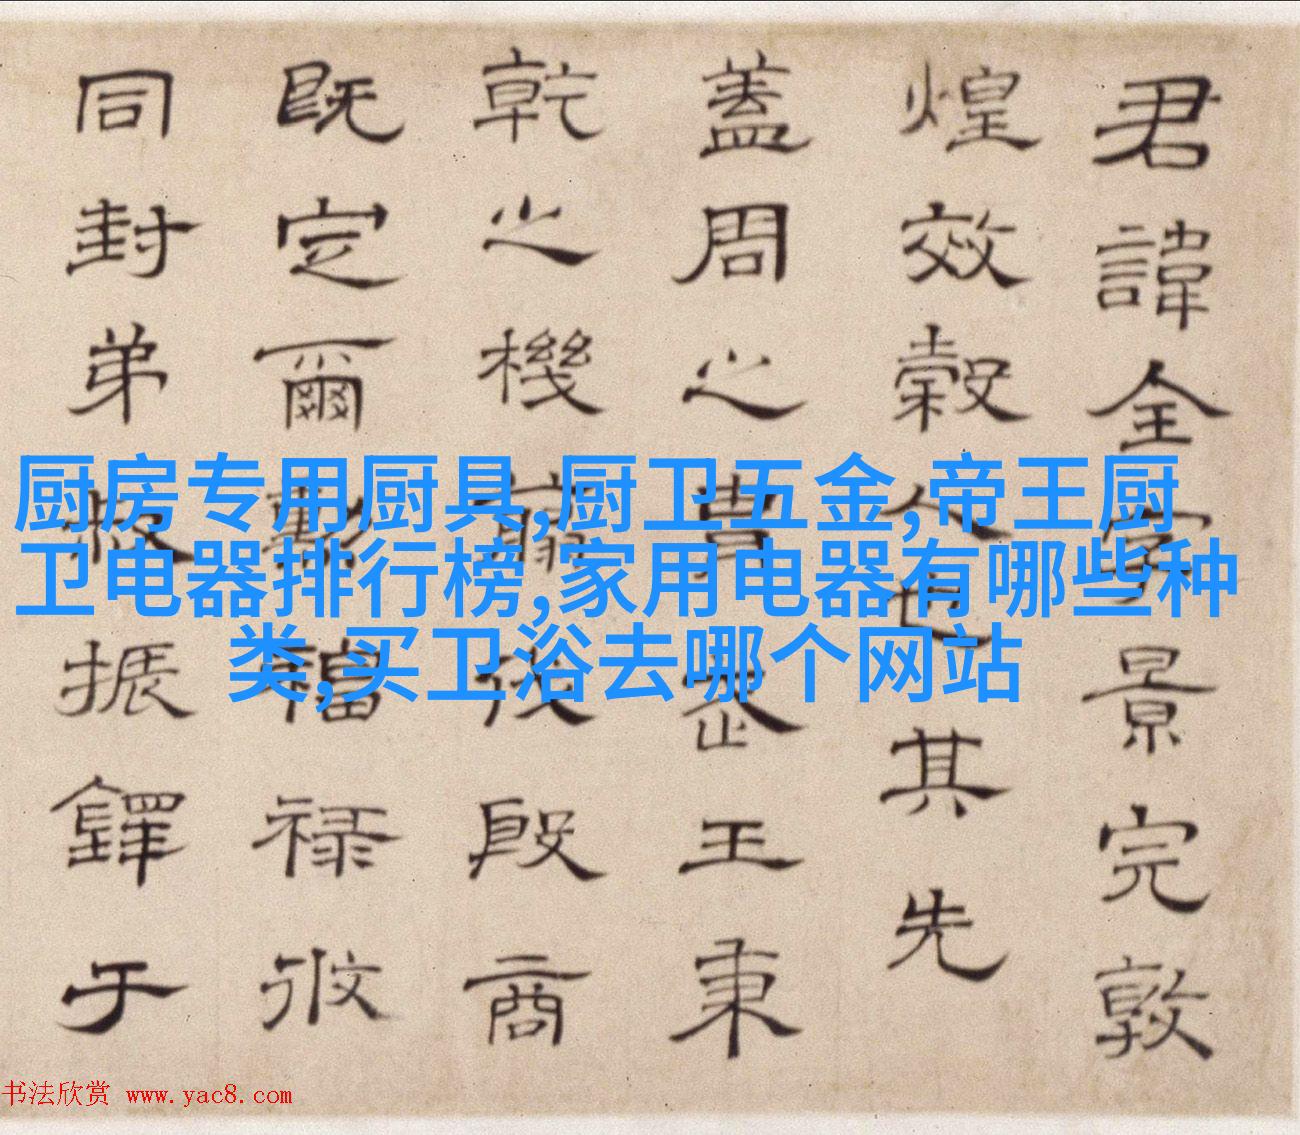 君諱全字景完敦
煌效穀人也其先
蓋周之胄武王秉
乾之機翦伐殷商
既定爾勳福祿攸
同封弟叔振鐸于
厨房专用厨具,厨卫五金,帝王厨
卫电器排行榜,家用电器有哪些种
类,买卫浴去哪个网站
书法欣赏 www.yac8.com